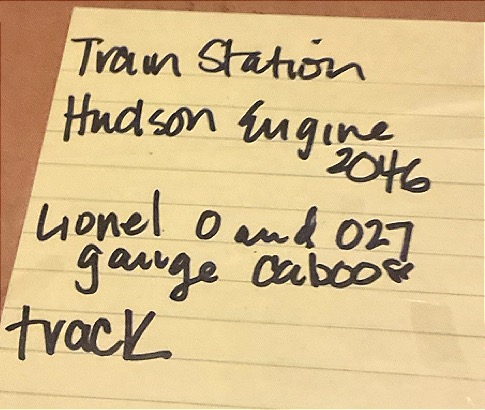 Train Station
Hudson Engine
2046
Lionel O and 027
gauge caboose
track